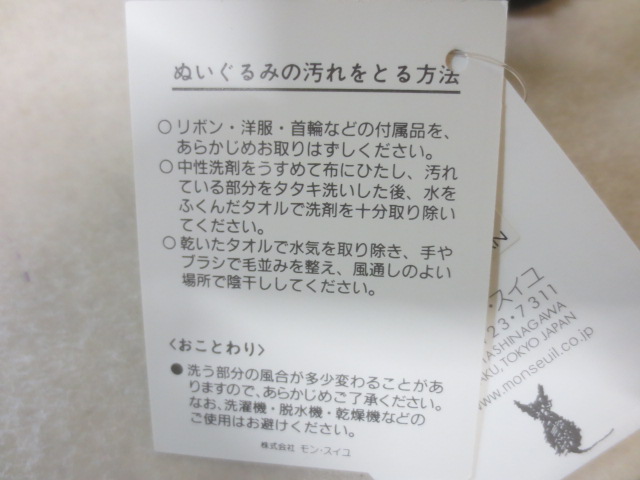 ぬいぐるみの汚れをとる方法
○リボン・洋服・首輪などの付属品を、
あらかじめお取りはずしください。
○中性洗剤をうすめて布にひたし、汚れ
ている部分をタタキ洗いした後、水を
ふくんだタオルで洗剤を十分取り除い
てください。
○乾いたタオルで水気を取り除き、手や
ブラシで毛並みを整え、風通しのよい
場所で陰干ししてください。
〈おことわり〉
●洗う部分の風合が多少変わることがあ
りますので、あらかじめご了承ください。
なお、洗濯機・脱水機・乾燥機などの
ご使用はお避けください。
株式会社 モン・スイユ
・スイユ
・23・7・311
TOKYO JAPAN
www.monseuil.co.jp